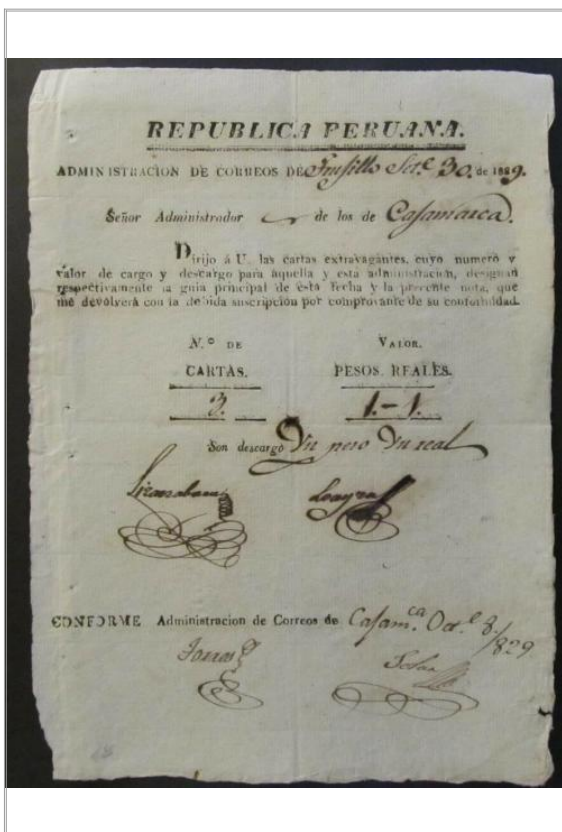 REPUBLICA PERUANA.
ADMINISTRACION DE CORREOS DE Truxillo Set.e 30. de 1829.
Señor Administrador de los de Cajamarca.
Dirijo á U. las cartas extravagantes, cuyo numero y
valor de cargo y descargo para aquella y esta administracion, designan
respectivamente la guia principal de esta fecha y la precente nota, que
me devolverá con la debida suscripcion por comprovante de su conformidad.
N.o DE VALOR.
CARTAS. PESOS. REALES.
3. 1.-1.
Son descargo Un peso Un real
Lizarzaburu Loayza
CONFORME Administracion de Correos de Cajam.ca Oct.e 8./829